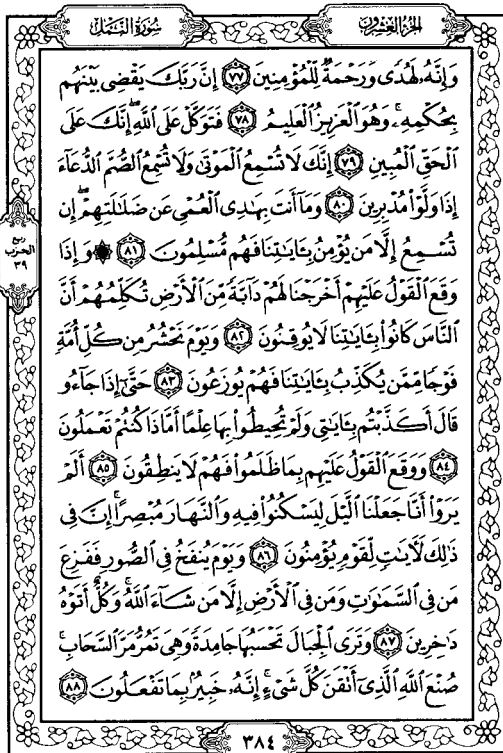 سُورَةُ النَّمْلِ
الجُزْءُ العِشْرُونَ
وَإِنَّهُۥ لَهُدًى وَرَحْمَةٌ لِّلْمُؤْمِنِينَ ۝٧٧ إِنَّ رَبَّكَ يَقْضِى بَيْنَهُم
بِحُكْمِهِۦ ۚ وَهُوَ ٱلْعَزِيزُ ٱلْعَلِيمُ ۝٧٨ فَتَوَكَّلْ عَلَى ٱللَّهِ ۖ إِنَّكَ عَلَى
ٱلْحَقِّ ٱلْمُبِينِ ۝٧٩ إِنَّكَ لَا تُسْمِعُ ٱلْمَوْتَىٰ وَلَا تُسْمِعُ ٱلصُّمَّ ٱلدُّعَآءَ
إِذَا وَلَّوْا۟ مُدْبِرِينَ ۝٨٠ وَمَآ أَنتَ بِهَـٰدِى ٱلْعُمْىِ عَن ضَلَـٰلَتِهِمْ ۖ إِن
تُسْمِعُ إِلَّا مَن يُؤْمِنُ بِـَٔايَـٰتِنَا فَهُم مُّسْلِمُونَ ۝٨١ ۞ وَإِذَا
وَقَعَ ٱلْقَوْلُ عَلَيْهِمْ أَخْرَجْنَا لَهُمْ دَآبَّةً مِّنَ ٱلْأَرْضِ تُكَلِّمُهُمْ أَنَّ
ٱلنَّاسَ كَانُوا۟ بِـَٔايَـٰتِنَا لَا يُوقِنُونَ ۝٨٢ وَيَوْمَ نَحْشُرُ مِن كُلِّ أُمَّةٍ
فَوْجًا مِّمَّن يُكَذِّبُ بِـَٔايَـٰتِنَا فَهُمْ يُوزَعُونَ ۝٨٣ حَتَّىٰٓ إِذَا جَآءُو
قَالَ أَكَذَّبْتُم بِـَٔايَـٰتِى وَلَمْ تُحِيطُوا۟ بِهَا عِلْمًا أَمَّاذَا كُنتُمْ تَعْمَلُونَ
۝٨٤ وَوَقَعَ ٱلْقَوْلُ عَلَيْهِم بِمَا ظَلَمُوا۟ فَهُمْ لَا يَنطِقُونَ ۝٨٥ أَلَمْ
يَرَوْا۟ أَنَّا جَعَلْنَا ٱلَّيْلَ لِيَسْكُنُوا۟ فِيهِ وَٱلنَّهَارَ مُبْصِرًا ۚ إِنَّ فِى
ذَٰلِكَ لَـَٔايَـٰتٍ لِّقَوْمٍ يُؤْمِنُونَ ۝٨٦ وَيَوْمَ يُنفَخُ فِى ٱلصُّورِ فَفَزِعَ
مَن فِى ٱلسَّمَـٰوَٰتِ وَمَن فِى ٱلْأَرْضِ إِلَّا مَن شَآءَ ٱللَّهُ ۚ وَكُلٌّ أَتَوْهُ
دَٰخِرِينَ ۝٨٧ وَتَرَى ٱلْجِبَالَ تَحْسَبُهَا جَامِدَةً وَهِىَ تَمُرُّ مَرَّ ٱلسَّحَابِ ۚ
صُنْعَ ٱللَّهِ ٱلَّذِىٓ أَتْقَنَ كُلَّ شَىْءٍ ۚ إِنَّهُۥ خَبِيرٌۢ بِمَا تَفْعَلُونَ ۝٨٨
ربع
الحزب
٣٩
٣٨٤